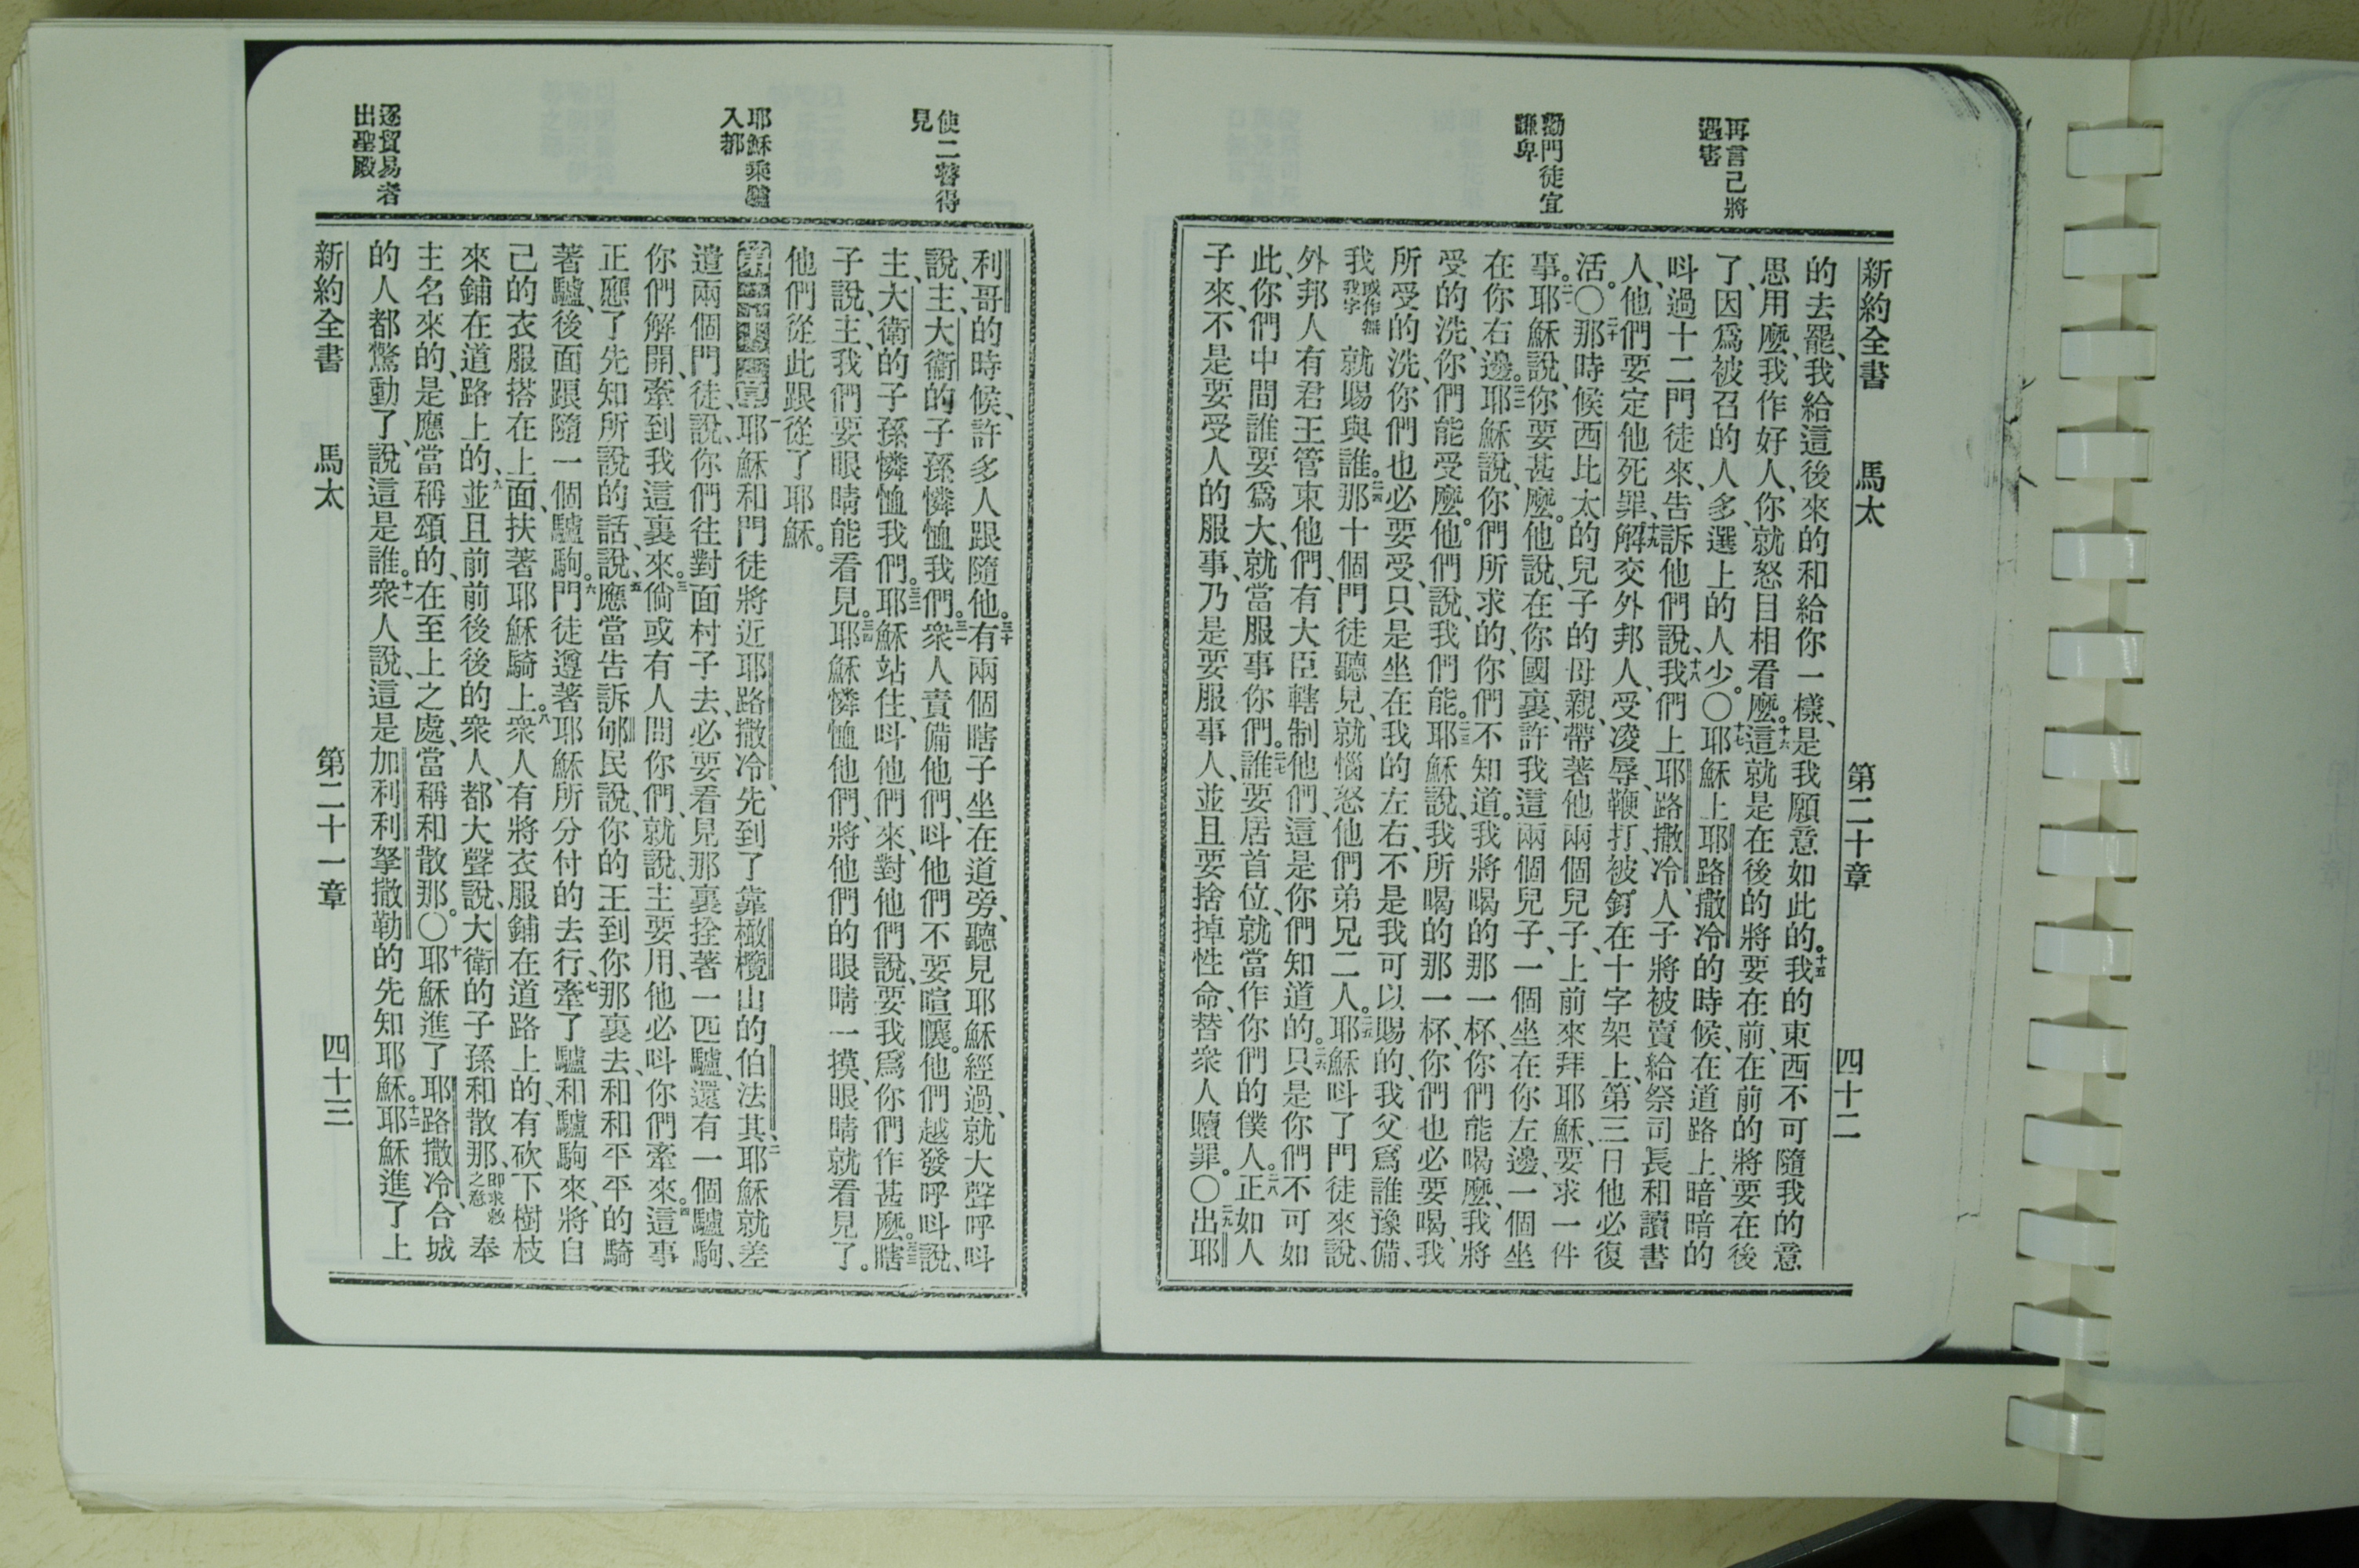 再言己將
遇害
勸門徒宜
謙卑
新約全書 馬太 第二十章 四十二
的去罷、我給這後來的和給你一樣、是我願意如此的。十五我的東西不可隨我的意
思用麼、我作好人、你就怒目相看麼。十六這就是在後的將要在前、在前的將要在後
了、因爲被召的人多、選上的人少。〇十七耶穌上耶路撒冷的時候、在道路上、暗暗的
呌過十二門徒來、告訴他們說、十八我們上耶路撒冷、人子將被賣給祭司長和讀書
人、他們要定他死罪、十九解交外邦人、受凌辱、鞭打、被釘在十字架上、第三日他必復
活。〇二十那時候西比太的兒子的母親、帶著他兩個兒子、上前來拜耶穌、要求一件
事。二一耶穌說、你要甚麼。他說、在你國裏、許我這兩個兒子、一個坐在你左邊、一個坐
在你右邊。二二耶穌說、你們所求的、你們不知道。我將喝的那一杯、你們能喝麼、我將
受的洗、你們能受麼。他們說、我們能。二三耶穌說、我所喝的那一杯、你們也必要喝、我
所受的洗、你們也必要受、只是坐在我的左右、不是我可以賜的、我父爲誰豫備、
我或作無我字就賜與誰。二四那十個門徒聽見、就惱怒他們弟兄二人。二五耶穌呌了門徒來說、
外邦人有君王管束他們、有大臣轄制他們、這是你們知道的。二六只是你們不可如
此、你們中間誰要爲大、就當服事你們。二七誰要居首位、就當作你們的僕人。二八正如人
子來、不是要受人的服事、乃是要服事人、並且要捨掉性命、替衆人贖罪。〇二九出耶
使二瞽得
見
耶穌乘驢
入都
逐貿易者
出聖殿
利哥的時候、許多人跟隨他。三十有兩個瞎子坐在道旁、聽見耶穌經過、就大聲呼呌
說、主、大衛的子孫憐恤我們。三一衆人責備他們、呌他們不要喧嚷。他們越發呼呌說、
主、大衛的子孫憐恤我們。三二耶穌站住、呌他們來、對他們說、要我爲你們作甚麼。三三瞎
子說、主、我們要眼睛能看見。三四耶穌憐恤他們、將他們的眼睛一摸、眼睛就看見了。
他們從此跟從了耶穌。
第二十一章一耶穌和門徒將近耶路撒冷、先到了靠橄欖山的伯法其、二耶穌就差
遣兩個門徒、說、你們往對面村子去、必要看見那裏拴著一匹驢、還有一個驢駒、
你們解開、牽到我這裏來。三倘或有人問你們、就說、主要用、他必呌你們牽來。四這事
正應了先知所說的話、說、五應當告訴郇民說、你的王到你那裏去、和和平平的騎
著驢、後面跟隨一個驢駒。六門徒遵著耶穌所分付的去行、七牽了驢和驢駒來、將自
己的衣服搭在上面、扶著耶穌騎上。八衆人有將衣服鋪在道路上的、有砍下樹枝
來鋪在道路上的、九並且前前後後的衆人、都大聲說、大衛的子孫和散那、即求救之意奉
主名來的、是應當稱頌的、在至上之處、當稱和散那。〇十耶穌進了耶路撒冷、合城
的人都驚動了、說這是誰。十一衆人說、這是加利利拏撒勒的先知耶穌。十二耶穌進了上
新約全書 馬太 第二十一章 四十三